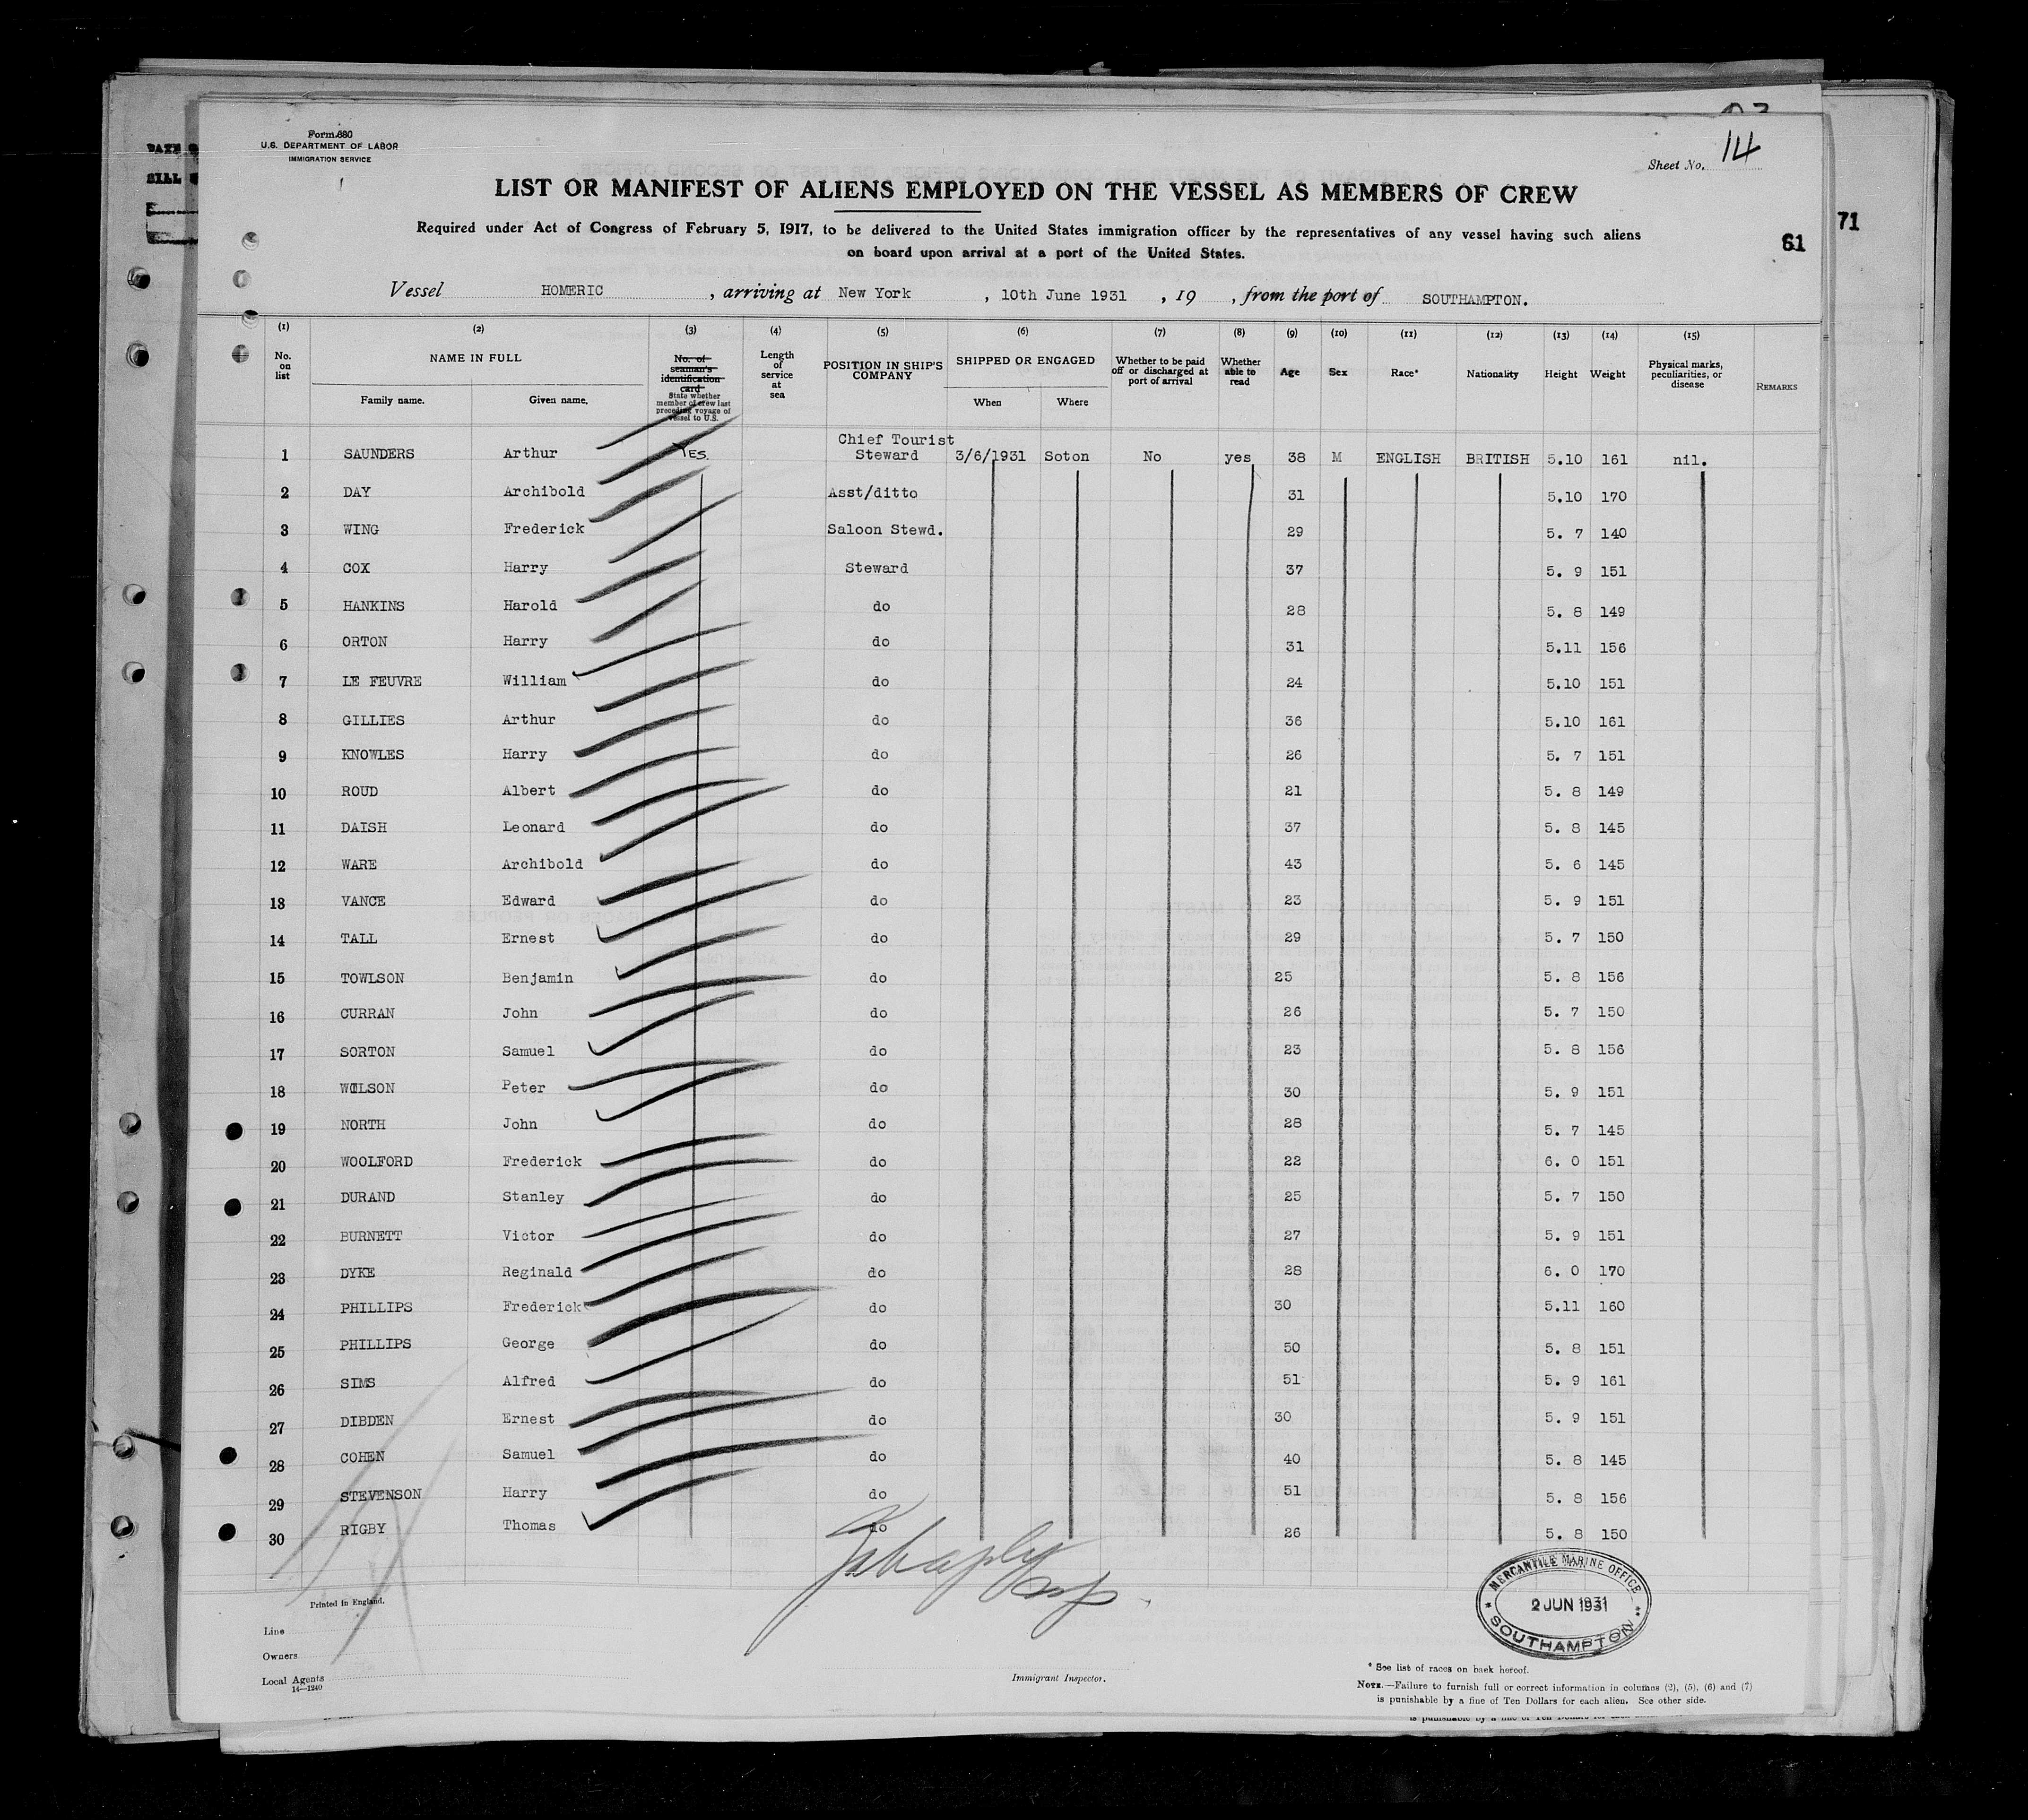 Form 680
U.S. DEPARTMENT OF LABOR
IMMIGRATION SERVICE
Sheet No. 14
LIST OR MANIFEST OF ALIENS EMPLOYED ON THE VESSEL AS MEMBERS OF CREW
Required under Act of Congress of February 5, 1917, to be delivered to the United States immigration officer by the representatives of any vessel having such aliens
on board upon arrival at a port of the United States.
61
71
Vessel HOMERIC, arriving at New York, 10th June 1931, 19 , from the port of SOUTHAMPTON.
(1) (2) (3) (4) (5) (6) (7) (8) (9) (10) (11) (12) (13) (14) (15)
No. on list
NAME IN FULL
Family name. Given name.
No. of seaman's identification card
State whether member of crew last preceding voyage of vessel to U.S.
Length of service at sea
POSITION IN SHIP'S COMPANY
SHIPPED OR ENGAGED
When Where
Whether to be paid off or discharged at port of arrival
Whether able to read
Age Sex Race* Nationality Height Weight
Physical marks, peculiarities, or disease
REMARKS
1 SAUNDERS Arthur YES. Chief Tourist Steward 3/6/1931 Soton No yes 38 M ENGLISH BRITISH 5.10 161 nil.
2 DAY Archibold Asst/ditto 31 5.10 170
3 WING Frederick Saloon Stewd. 29 5. 7 140
4 COX Harry Steward 37 5. 9 151
5 HANKINS Harold do 28 5. 8 149
6 ORTON Harry do 31 5.11 156
7 LE FEUVRE William do 24 5.10 151
8 GILLIES Arthur do 36 5.10 161
9 KNOWLES Harry do 26 5. 7 151
10 ROUD Albert do 21 5. 8 149
11 DAISH Leonard do 37 5. 8 145
12 WARE Archibold do 43 5. 6 145
13 VANCE Edward do 23 5. 9 151
14 TALL Ernest do 29 5. 7 150
15 TOWLSON Benjamin do 25 5. 8 156
16 CURRAN John do 26 5. 7 150
17 SORTON Samuel do 23 5. 8 156
18 Peter do 30 5. 9 151
19 NORTH John do 28 5. 7 145
20 WOOLFORD Frederick do 22 6. 0 151
21 DURAND Stanley do 25 5. 7 150
22 BURNETT Victor do 27 5. 9 151
23 DYKE Reginald do 28 6. 0 170
24 PHILLIPS Frederick do 30 5.11 160
25 PHILLIPS George do 50 5. 8 151
26 SIMS Alfred do 51 5. 9 161
27 DIBDEN Ernest do 30 5. 9 151
28 COHEN Samuel do 40 5. 8 145
29 STEVENSON Harry do 51 5. 8 156
30 RIGBY Thomas do 26 5. 8 150
Printed in England.
MERCANTILE MARINE OFFICE
2 JUN 1931
SOUTHAMPTON
Line
Owners
Local Agents
14—1240
Immigrant Inspector.
* See list of races on back hereof.
NOTE.—Failure to furnish full or correct information in columns (2), (5), (6) and (7)
is punishable by a fine of Ten Dollars for each alien. See other side.